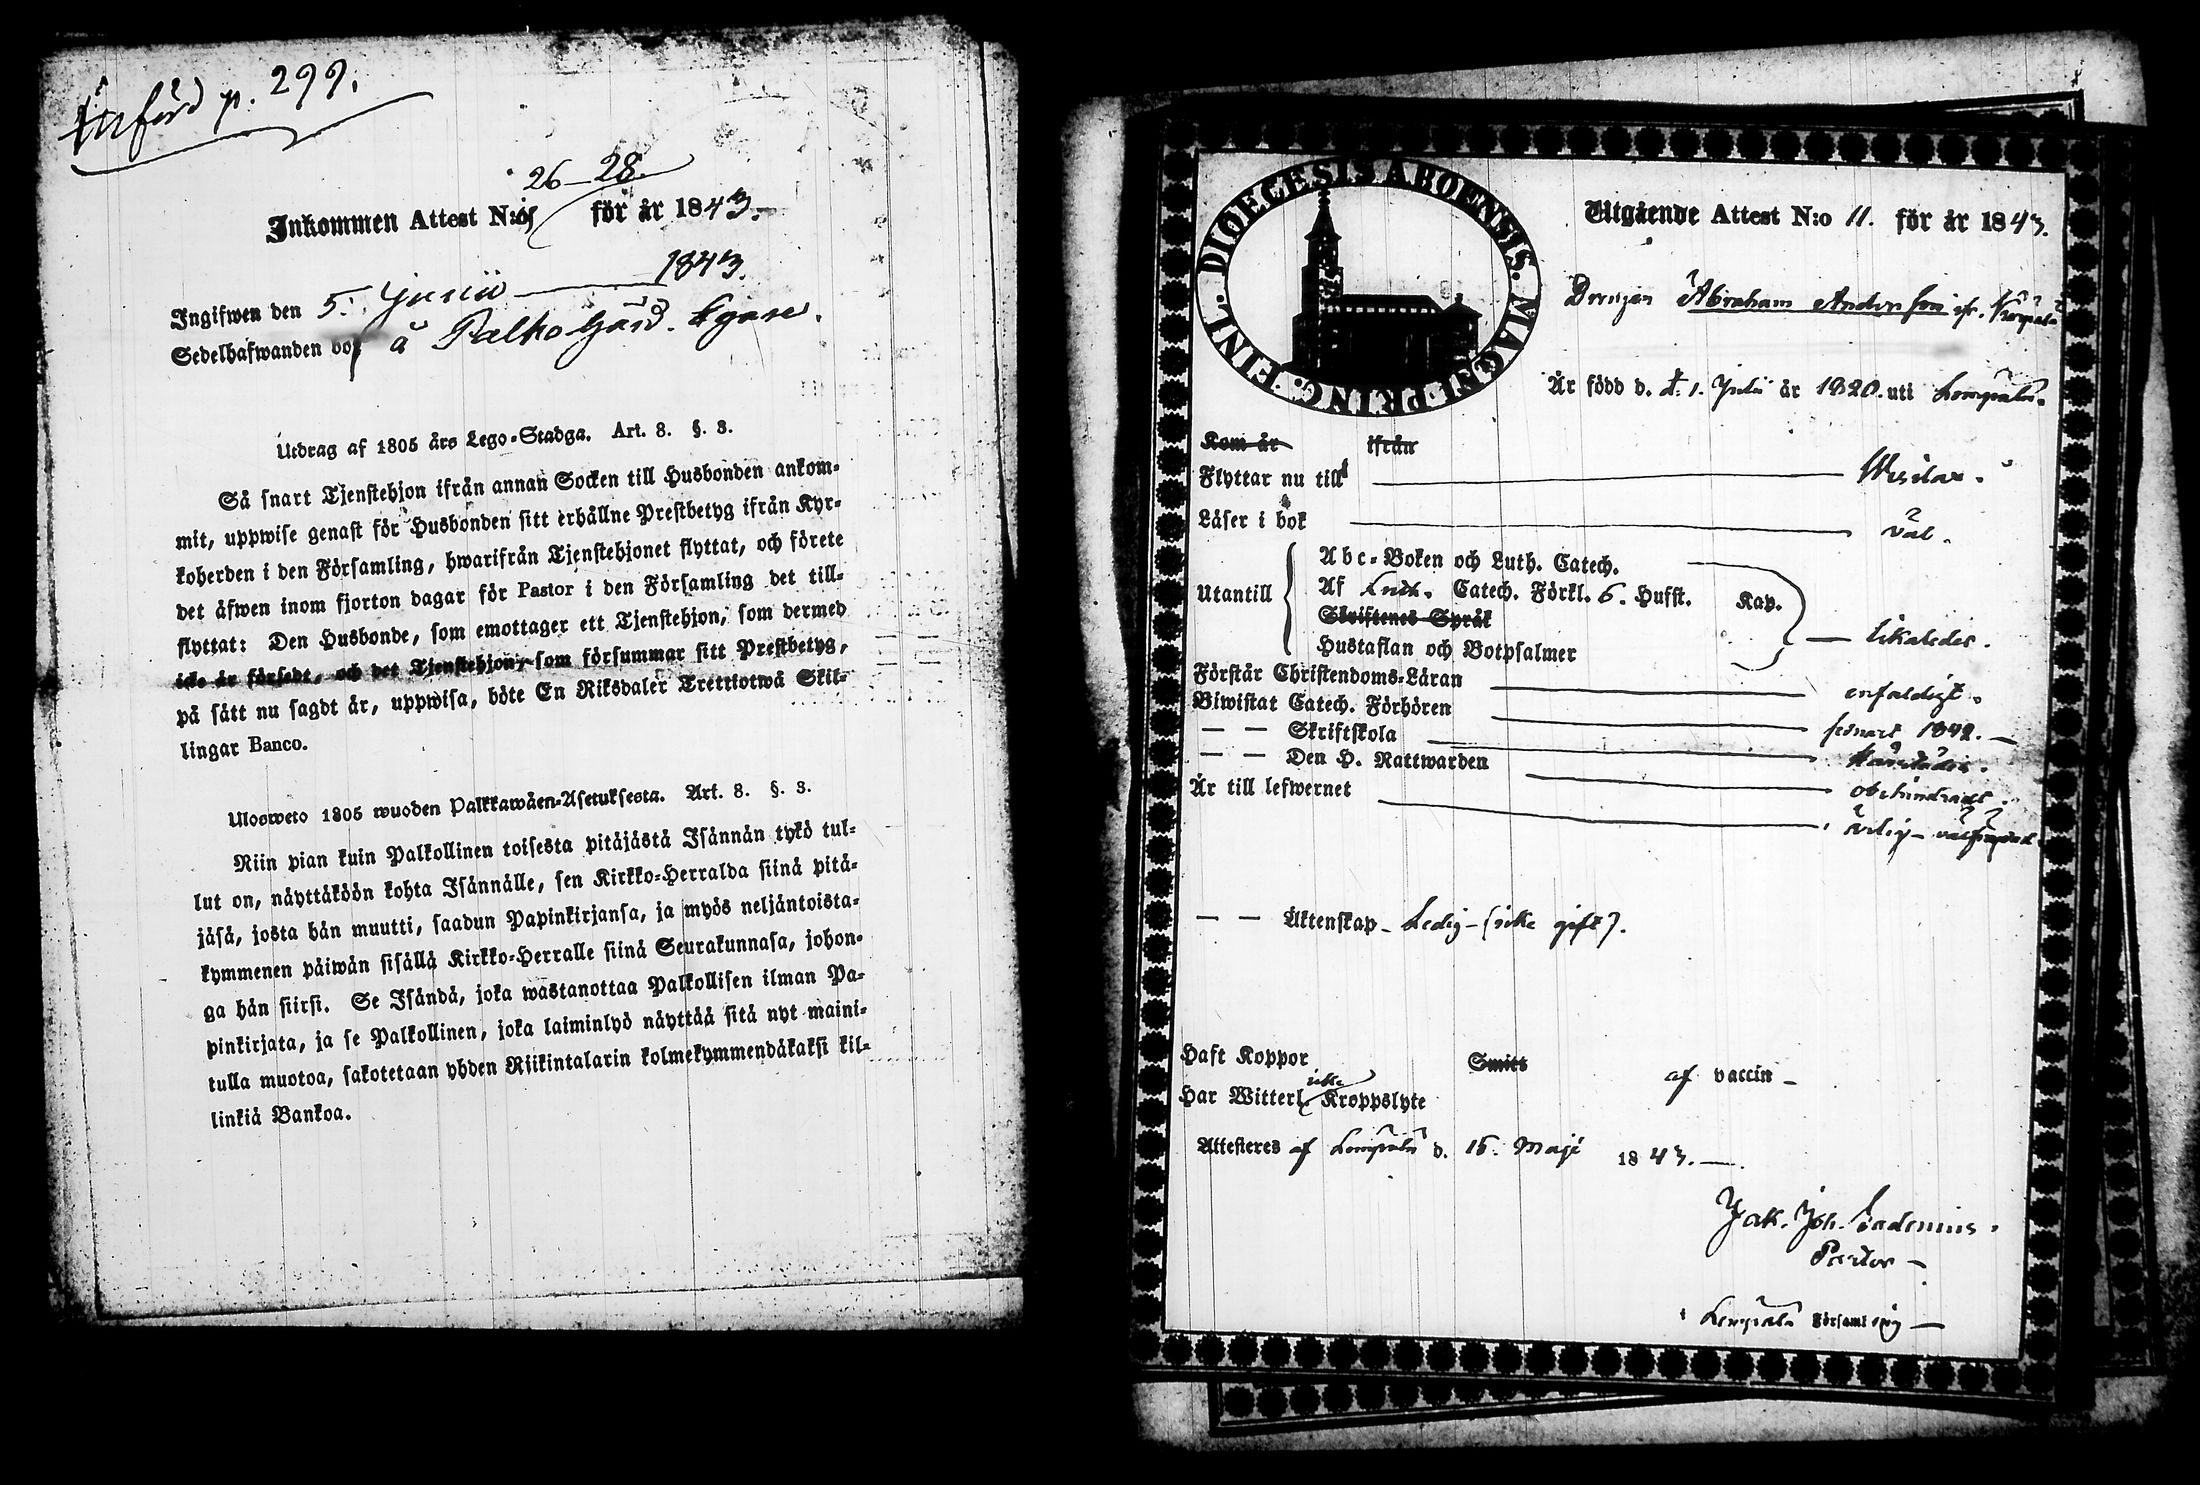 Införd p. 299.
26–28.
Inkommen Attest N:o för år 1843.
Ingifwen den 5. Junii 1843.
Sedelhafwanden bor å Palho Gård. Egare.
Utdrag af 1805 års Lego-Stadga. Art. 8. §. 3.
Så snart Tjenstehjon ifrån annan Socken till Husbonden ankom-
mit, uppwise genast för Husbonden sitt erhållne Prestbetyg ifrån Kyr-
koherden i den Församling, hwarifrån Tjenstehjonet flyttat, och förete
det äfwen inom fjorton dagar för Pastor i den Församling det till-
flyttat: Den Husbonde, som emottager ett Tjenstehjon, som dermed
icke är försedt, och det Tjenstehjon, som försummar sitt Prestbetyg,
på sätt nu sagdt är, uppwisa, böte En Riksdaler Trettiotwå Skil-
lingar Banco.
Ulosweto 1805 wuoden Palkkawäen-Asetuksesta. Art. 8. §. 3.
Niin pian kuin Palkollinen toisesta pitäjästä Isännän tykö tul-
lut on, näyttäköön kohta Isännälle, sen Kirkko-Herralda siinä pitä-
jäsä, josta hän muutti, saadun Papinkirjansa, ja myös neljäntoista-
kymmenen päiwän sisällä Kirkko-Herralle siinä Seurakunnasa, johon-
ga hän siirsi. Se Isändä, joka wastanottaa Palkollisen ilman Pa-
pinkirjata, ja se Palkollinen, joka laiminlyö näyttää sitä nyt maini-
tulla muotoa, sakotetaan yhden Riikintalarin kolmekymmendäkaksi kil-
linkiä Bankoa.
DIOECESIS ABOENSIS. MAGN. PRINC. FINL.
Utgående Attest N:o 11. för år 1843.
Drengen Abraham Andersson ifr.
Är född d. d. 1. Julii år 1820. uti Lempälä.
Kom år ifrån
Flyttar nu till Wesilax.
Läser i bok väl.
Utantill
Abc-Boken och Luth. Catech.
Af Luth. Catech. Förkl. 6. Hufst. Kap.
Skriftenes Språk
Hustaflan och Botpsalmer
likaledes.
Förstår Christendoms-Läran enfaldigt.
Biwistat Catech. Förhören senast 1842.
— — Skriftskola
— — Den H. Nattwarden obehindradt.
Är till lefwernet
— — Äktenskap – Ledig – (icke gift).
Haft Koppor Smitt af vaccin –
Har Witterl. icke Kroppslyte
Attesteres af Lempälä d. 15. Maji 1843.
Jak. Joh.
Pastor –
i Lempälä Församling –